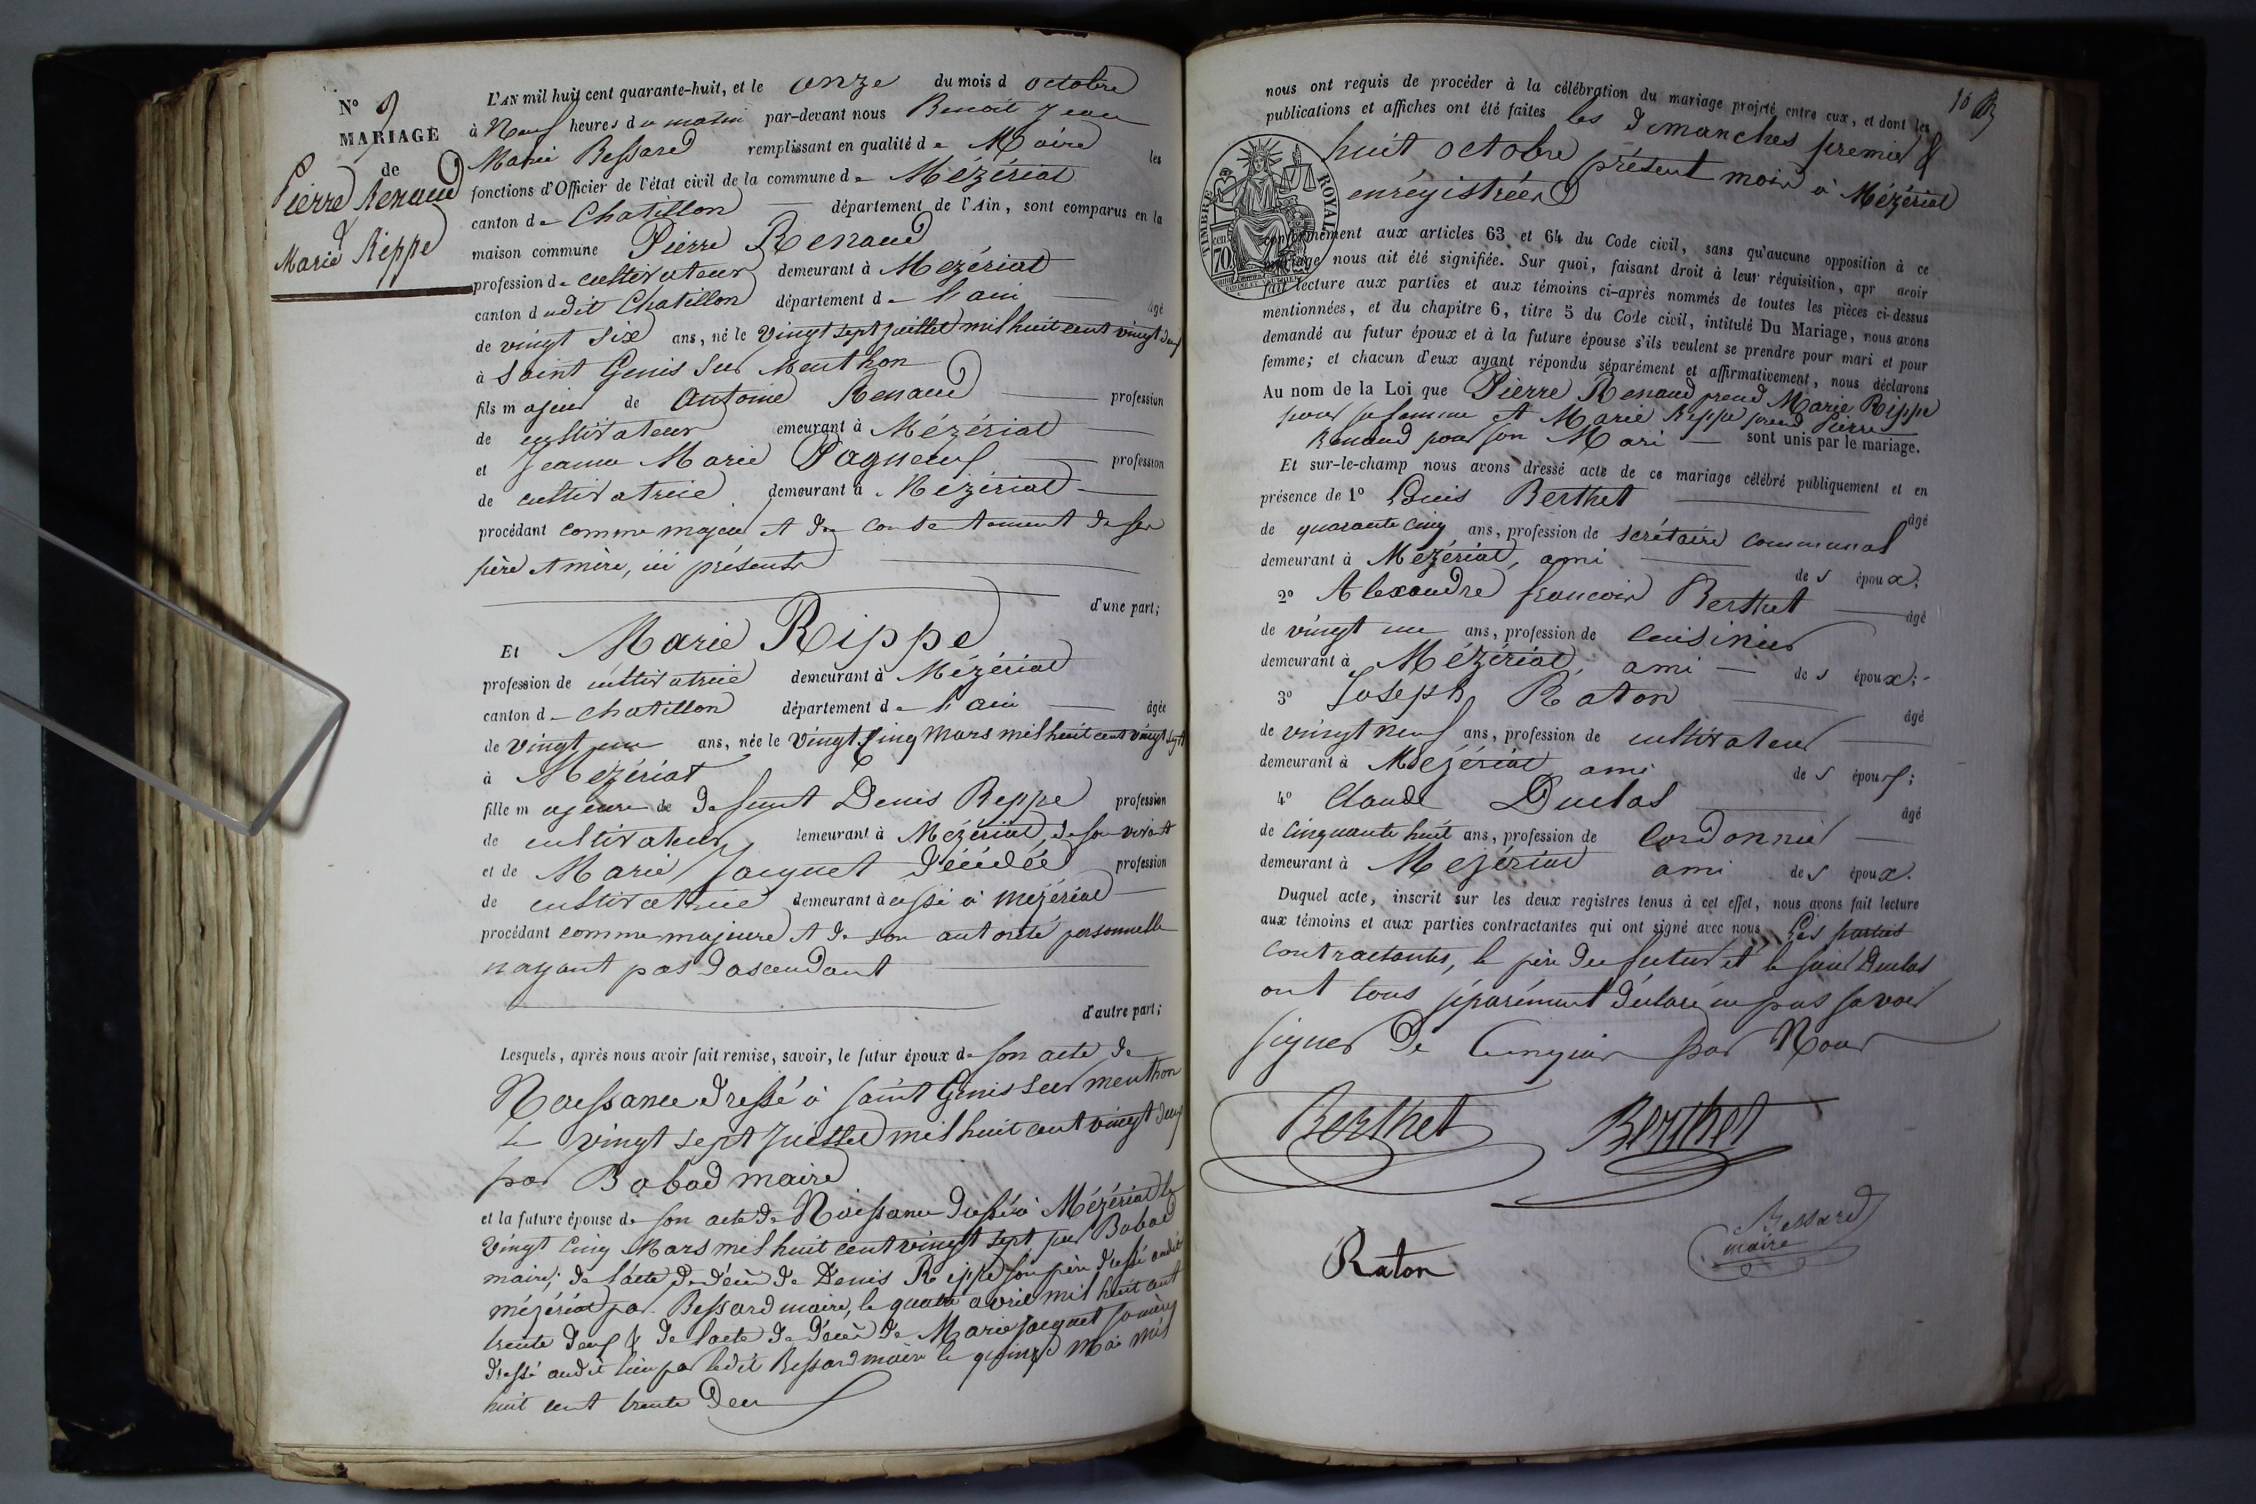 N° 9
MARIAGE
de
Pierre Renaud
&
Marie Rippe
L'AN mil huit cent quarante-huit, et le onze du mois d octobre
à Neuf heures du matin par-devant nous Benoit Jean
Marie Bessard remplissant en qualité de Maire les
fonctions d'Officier de l'état civil de la commune de Mézériat
canton de Chatillon département de l'Ain, sont comparus en la
maison commune Pierre Renaud
profession de cultivateur demeurant à Mézériat
canton dudit Chatillon département de l'ain âgé
de vingt six ans, né le vingt sept juillet mil huit cent vingt deux
à Saint Genis sur Menthon
fils majeur de Antoine Renaud profession
de cultivateur emeurant à Mézériat
et Jeanne Marie Pagneux profession
de cultivatrice demeurant à Mézériat
procédant comme majeur et du consentement de ses
père et mère, ici présents
d'une part;
Et Marie Rippe
profession de cultivatrice demeurant à Mézériat
canton de Chatillon département de l'ain âgée
de vingt un ans, née le vingt cinq mars mil huit cent vingt sept
à Mézériat
fille majeure de defunt Denis Rippe profession
de cultivateur demeurant à Mézériat, de son vivant
et de Marie Jacquet décédée profession
de cultivatrice demeurant à aussi à mézériat
procédant comme majeure et de son autorité personnelle
nayant pas dascendant
d'autre part;
Lesquels, après nous avoir fait remise, savoir, le futur époux de son acte de
Naissance dressé à saint Genis sur menthon
le vingt sept juillet mil huit cent vingt deux
par Babad maire
et la future épouse de son acte de Naissance dressé à Mézériat le
vingt cinq Mars mil huit cent vingt sept par Babad
maire; de l'acte de décès de Denis Rippe son père dressé audit
mézériat par Bessard maire, le quatre avril mil huit cent
trente deux & de l'acte de décès de Marie Jacquet sa mère
dressé audit lieu par ledit Bessard maire le quinze Mai mil
huit cent trente deux
10 B
nous ont requis de procéder à la célébration du mariage projeté entre eux, et dont les
publications et affiches ont été faites les dimanches premier &
huit octobre présent mois à Mézériat
enrégistrées
TIMBRE ROYAL
70
conformément aux articles 63 et 64 du Code civil, sans qu'aucune opposition à ce
mariage nous ait été signifiée. Sur quoi, faisant droit à leur réquisition, apr avoir
fait lecture aux parties et aux témoins ci-après nommés de toutes les pièces ci-dessus
mentionnées, et du chapitre 6, titre 5 du Code civil, intitulé Du Mariage, nous avons
demandé au futur époux et à la future épouse s'ils veulent se prendre pour mari et pour
femme; et chacun d'eux ayant répondu séparément et affirmativement, nous déclarons
Au nom de la Loi que Pierre Renaud prend Marie Rippe
pour sa femme et Marie Rippe prend Pierre
Renaud pour son Mari sont unis par le mariage.
Et sur-le-champ nous avons dressé acte de ce mariage célébré publiquement et en
présence de 1° Louis Berthet âgé
de quarante cinq ans, profession de secrétaire communal
demeurant à Mézériat, ami des époux.
2° Alexandre françois Berthet âgé
de vingt un ans, profession de cuisinier
demeurant à Mézériat, ami des époux;
3° Joseph Raton âgé
de vingt neuf ans, profession de cultivateur
demeurant à Mézériat ami des époux;
4° Claude Duclas âgé
de cinquante huit ans, profession de cordonnier
demeurant à Mézériat ami des époux.
Duquel acte, inscrit sur les deux registres tenus à cet effet, nous avons fait lecture
aux témoins et aux parties contractantes qui ont signé avec nous Les parties
contractantes, le père du futur et le sieur Duclas
ont tous séparément déclaré ne pas savoir
signer de ce enquis par Nous
Berthet Berthet
Bessard
maire
Raton